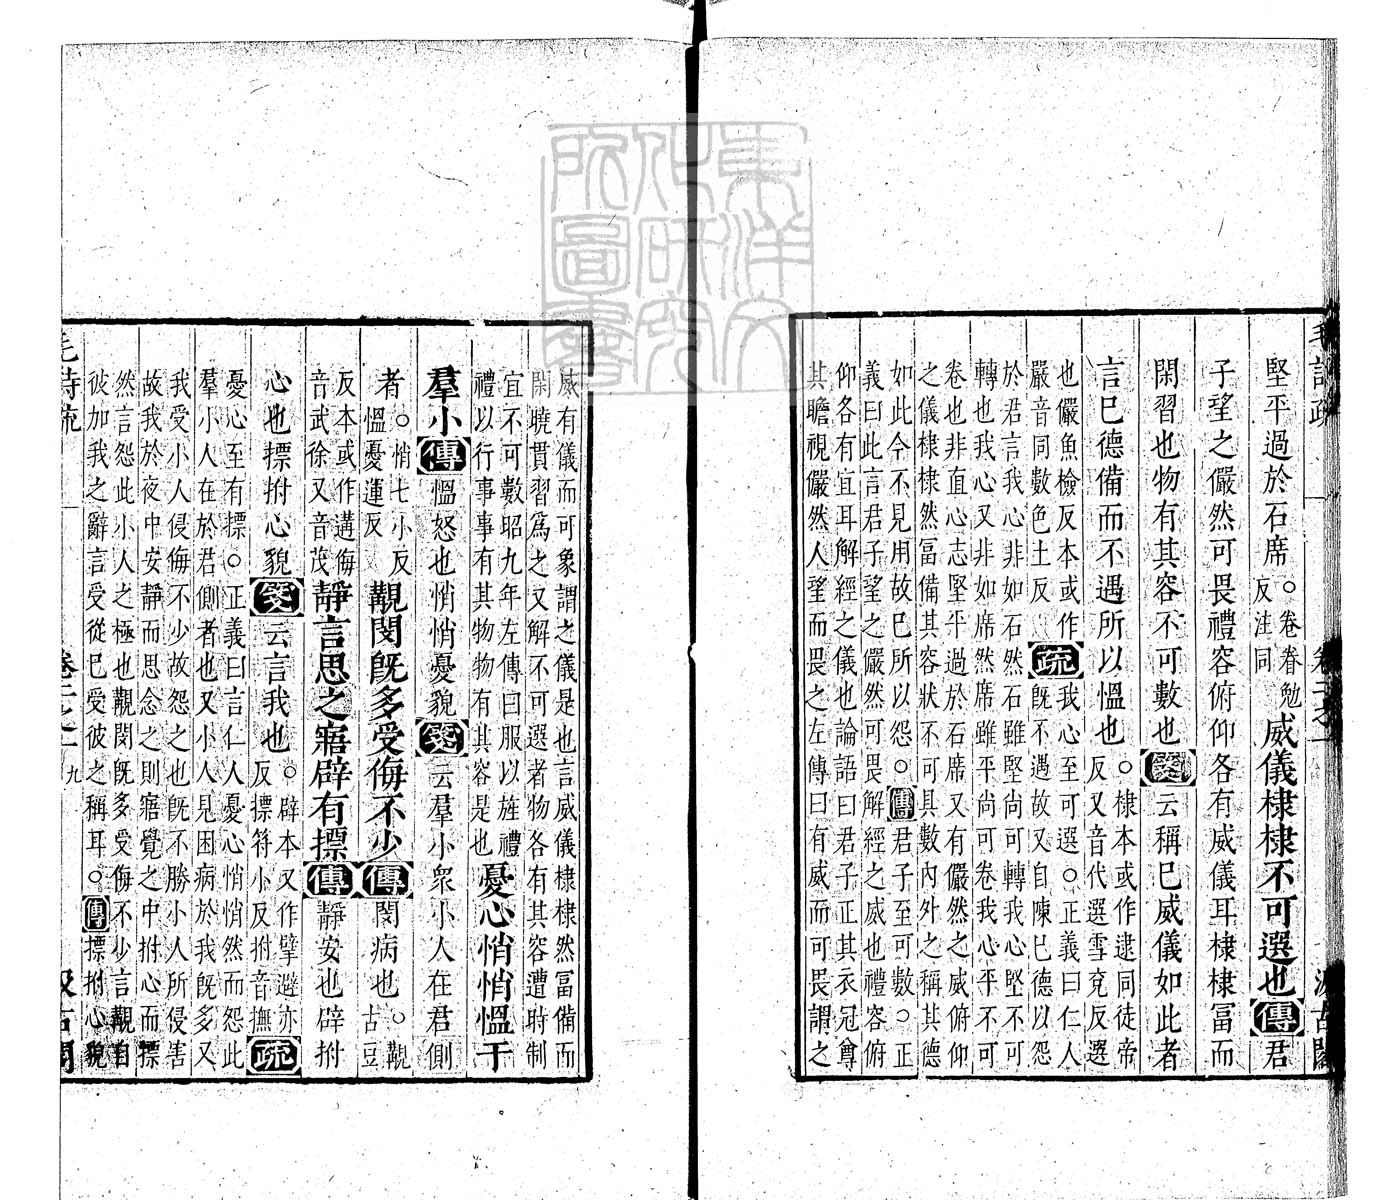 堅平過於石席○卷卷勉反注同威儀棣棣不可選也傳君
子望之儼然可畏禮容俯仰各有威儀耳棣棣冨而
閑習也物有其容不可數也箋云稱巳威儀如此者
言巳德備而不遇所以愠也○棣本或作逮同徒帝反又音代選雪兖反選
也儼魚檢反本或作嚴音同數色土反疏我心至可選○正義曰仁人既不遇故又自陳巳德以怨
於君言我心非如石然石雖堅尚可轉我心堅不可
轉也我心又非如席然席雖平尚可卷我心平不可
卷也非直心志堅平過於石席又有儼然之威俯仰
之儀棣棣然冨備其容狀不可具數內外之稱其德
如此今不見用故巳所以怨○傳君子至可數○正
義曰此言君子望之儼然可畏解經之威也禮容俯
仰各有宜耳解經之儀也論語曰君子正其衣冠尊
其瞻視儼然人望而畏之左傳曰有威而可畏謂之
威有儀而可象謂之儀是也言威儀棣棣然冨備而
閑曉貫習爲之又解不可選者物各有其容遭時制
宜不可數昭九年左傳曰服以旌禮
禮以行事事有其物物有其容是也憂心悄悄愠于
羣小傳愠怒也悄悄憂貌箋云羣小衆小人在君側
者○悄七小反愠憂運反覯閔旣多受侮不少傳閔病也○覯古豆
反本或作遘侮音武徐又音茂靜言思之寤辟有摽傳靜安也辟拊
心也摽拊心貌箋云言我也○辟本又作擘避亦反摽符小反拊音撫疏
憂心至有摽○正義曰言仁人憂心悄悄然而怨此
羣小人在於君側者也又小人見困病於我旣多又
我受小人侵侮不少故怨之也旣不勝小人所侵害
故我於夜中安靜而思念之則寤覺之中拊心而摽
然言怨此小人之極也覯閔旣多受侮不少言覯自
彼加我之辭言受從巳受彼之稱耳○傳摽拊心貌
毛詩疏
卷二之一
九
汲古閣